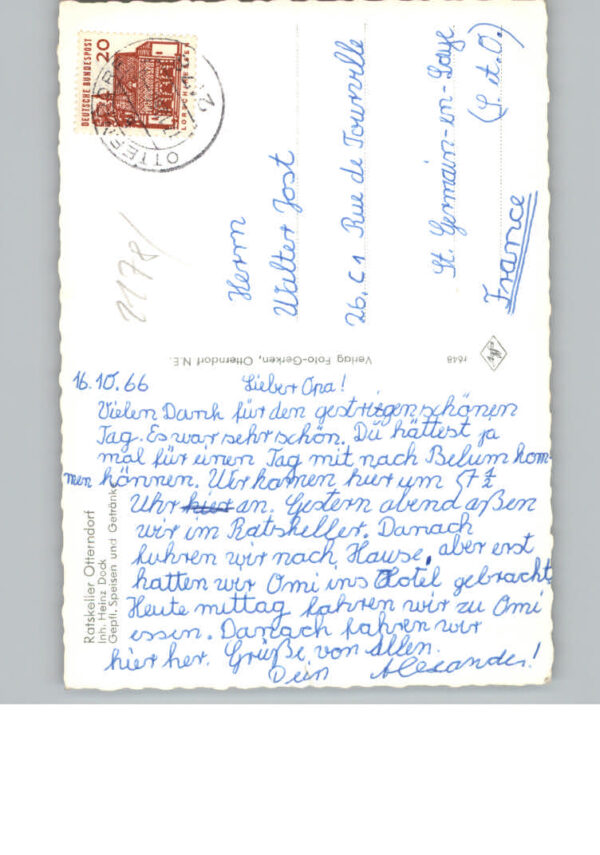 DEUTSCHE BUNDESPOST
20
LORSCH
OTTERNDORF
1178/
Herrn
Walter Jost
26, C1 Rue de Tourville
St. Germain-en-Laye
(S. et O.)
France
Verlag Foto-Gerken, Otterndorf N.E.
1648
Agfa
Ratskeller Otterndorf
Inh. Heinz Dock
Gepfl. Speisen und Getränke
16.10.66
Lieber Opa!
Vielen Dank für den gestrigen schönen
Tag. Es war sehr schön. Du hättest ja
mal für einen Tag mit nach Belum kom-
men können. Wir kamen hier um 7 1/2
Uhr hier an. Gestern abend aßen
wir im Ratskeller. Danach
fuhren wir nach Hause, aber erst
hatten wir Omi ins Hotel gebracht.
Heute mittag fahren wir zu Omi
essen. Danach fahren wir
hier her. Grüße von Allen.
Dein Alexander!